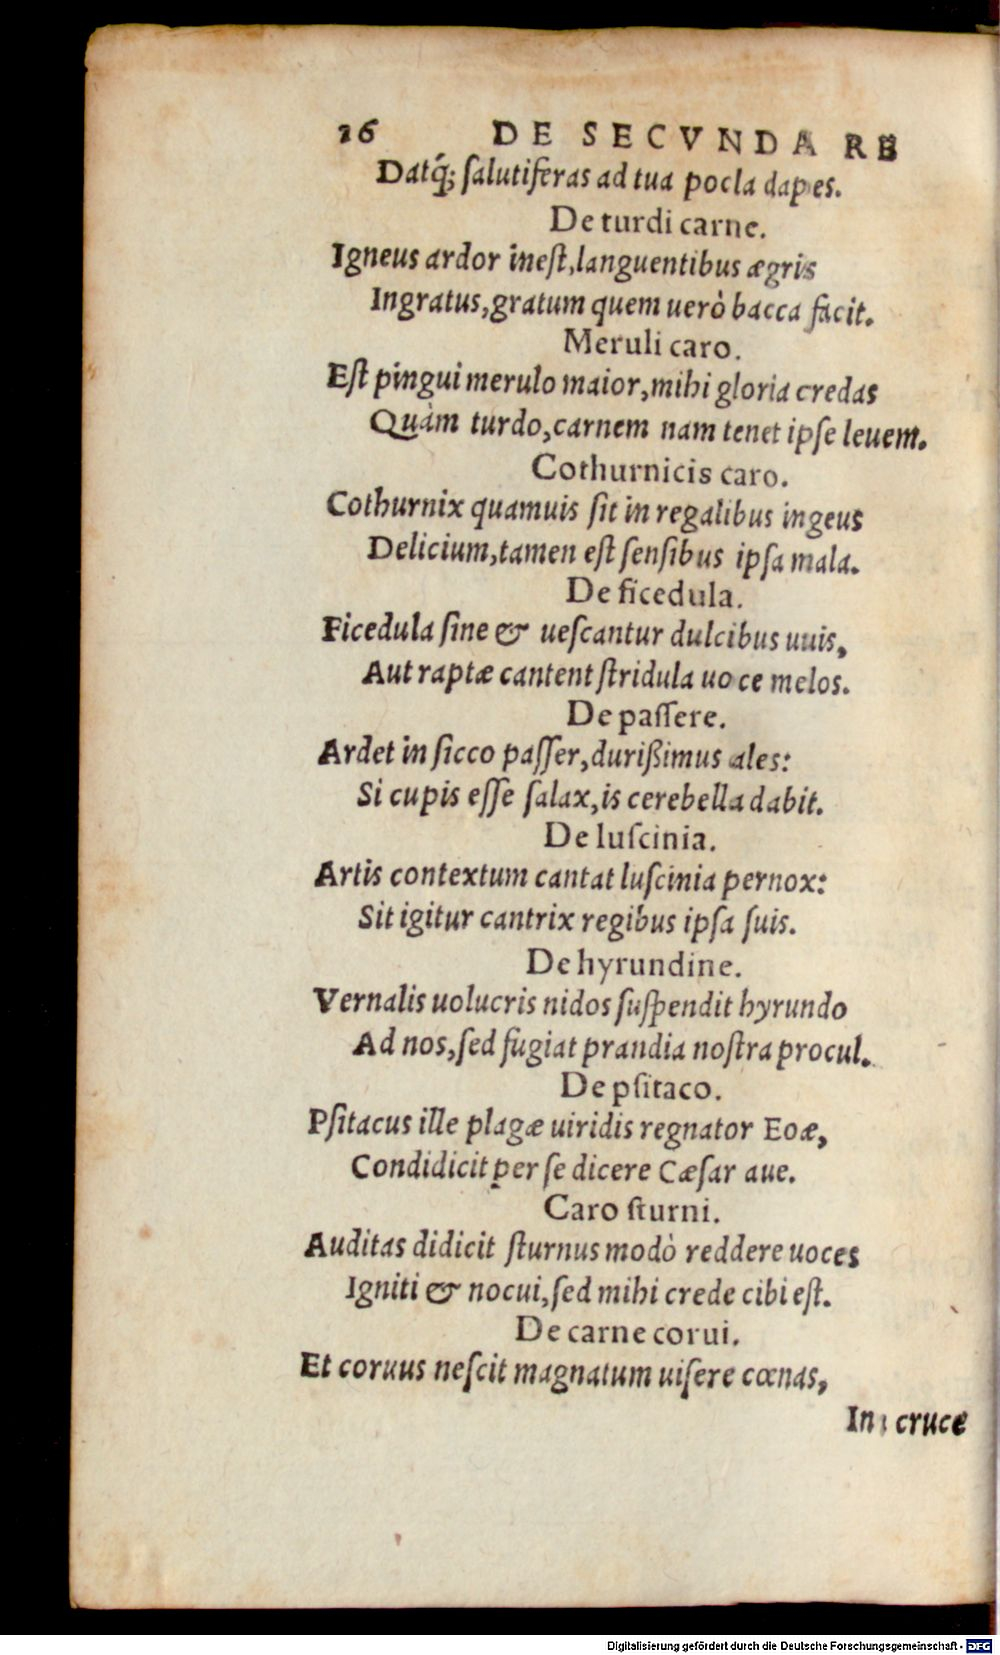 16 DE SECVNDA RE
Datq́; ſalutiferas ad tua pocla dapes.
De turdi carne.
Igneus ardor ineſt, languentibus ægris
Ingratus, gratum quem uerò bacca facit.
Meruli caro.
Eſt pingui merulo maior, mihi gloria credas
Quàm turdo, carnem nam tenet ipſe leuem.
Cothurnicis caro.
Cothurnix quamuis ſit in regalibus ingeus
Delicium, tamen eſt ſenſibus ipſa mala.
De ficedula.
Ficedula ſine & ueſcantur dulcibus uuis,
Aut raptæ cantent ſtridula uoce melos.
De paſſere.
Ardet in ſicco paſſer, durißimus ales:
Si cupis eſſe ſalax, is cerebella dabit.
De luſcinia.
Artis contextum cantat luſcinia pernox:
Sit igitur cantrix regibus ipſa ſuis.
De hyrundine.
Vernalis uolucris nidos ſuſpendit hyrundo
Ad nos, ſed fugiat prandia noſtra procul.
De pſitaco.
Pſitacus ille plagæ uiridis regnator Eoæ,
Condidicit per ſe dicere Cæſar aue.
Caro ſturni.
Auditas didicit ſturnus modò reddere uoces
Igniti & nocui, ſed mihi crede cibi eſt.
De carne corui.
Et coruus neſcit magnatum uiſere cœnas,
In cruce
Digitalisierung gefördert durch die Deutsche Forschungsgemeinschaft - DFG